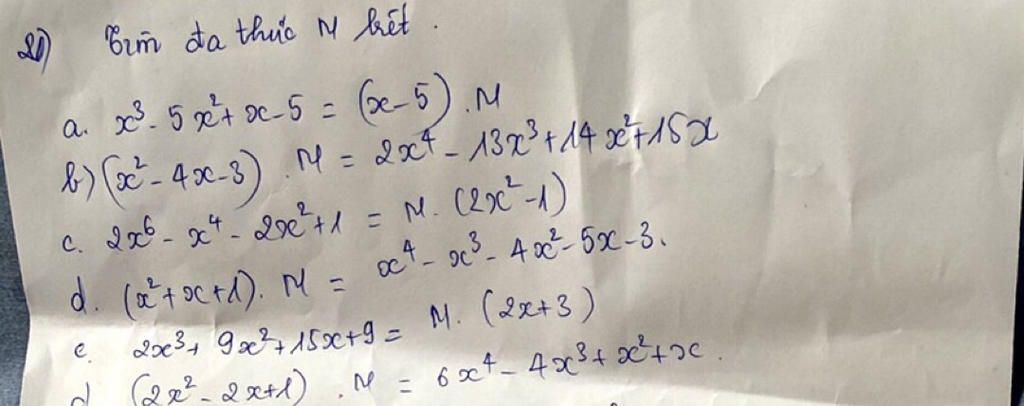 21) Tìm đa thức M biết.
a. x³ - 5x² + x - 5 = (x - 5).M
b) (x² - 4x - 3).M = 2x⁴ - 13x³ + 14x² + 15x
c. 2x⁶ - x⁴ - 2x² + 1 = M.(2x² - 1)
d. (x² + x + 1).M = x⁴ - x³ - 4x² - 5x - 3.
e. 2x³ + 9x² + 15x + 9 = M.(2x + 3)
d (2x² - 2x + 1).M = 6x⁴ - 4x³ + x² + x.